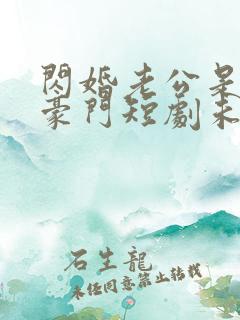 閃婚老公呆
豪門短劇未
石生龍
未經同意禁止轉載